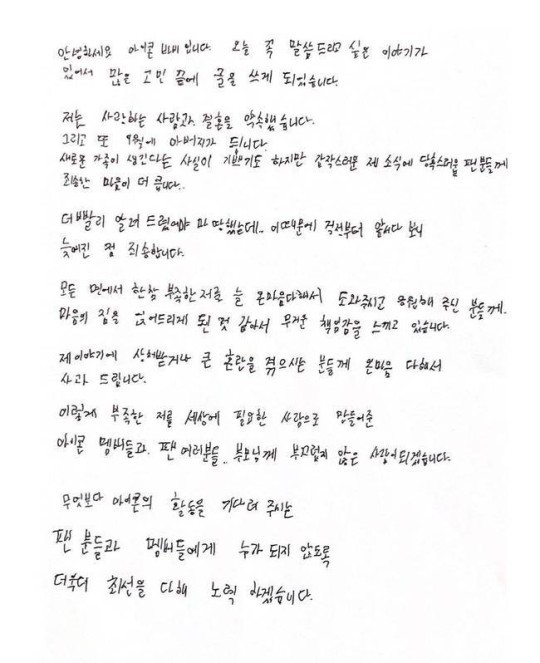 안녕하세요 아이콘 바비 입니다. 오늘 꼭 말씀드리고 싶은 이야기가
있어서 많은 고민 끝에 글을 쓰게 되었습니다.
저는 사랑하는 사람과 결혼을 약속했습니다.
그리고 또 9월에 아버지가 됩니다.
새로운 가족이 생긴다는 사실이 기쁘기도 하지만 갑작스러운 제 소식에 당혹스러울 팬분들께
죄송한 마음이 더 큽니다..
더 빨리 알려 드렸어야 마땅했는데.. 이 때문에 걱정부터 앞서다 보니
늦어진 점 죄송합니다.
모든 면에서 한참 부족한 저를 늘 온마음 다해서 도와주시고 응원해 주신 분들께.
마음의 짐을 얹어드리게 된 것 같아서 무거운 책임감을 느끼고 있습니다.
제이야기에 상처받거나 큰 혼란을 겪으시는 분들께 온마음 다해서
사과 드립니다.
이렇게 부족한 저를 세상에 필요한 사람으로 만들어준
아이콘 멤버들과 팬 여러분들.. 부모님께 부끄럽지 않은 사람이되겠습니다.
무엇보다 아이콘의 활동을 기다려 주시는
팬 분들과 멤버들에게 누가 되지 않도록
더욱더 최선을 다해 노력 하겠습니다.